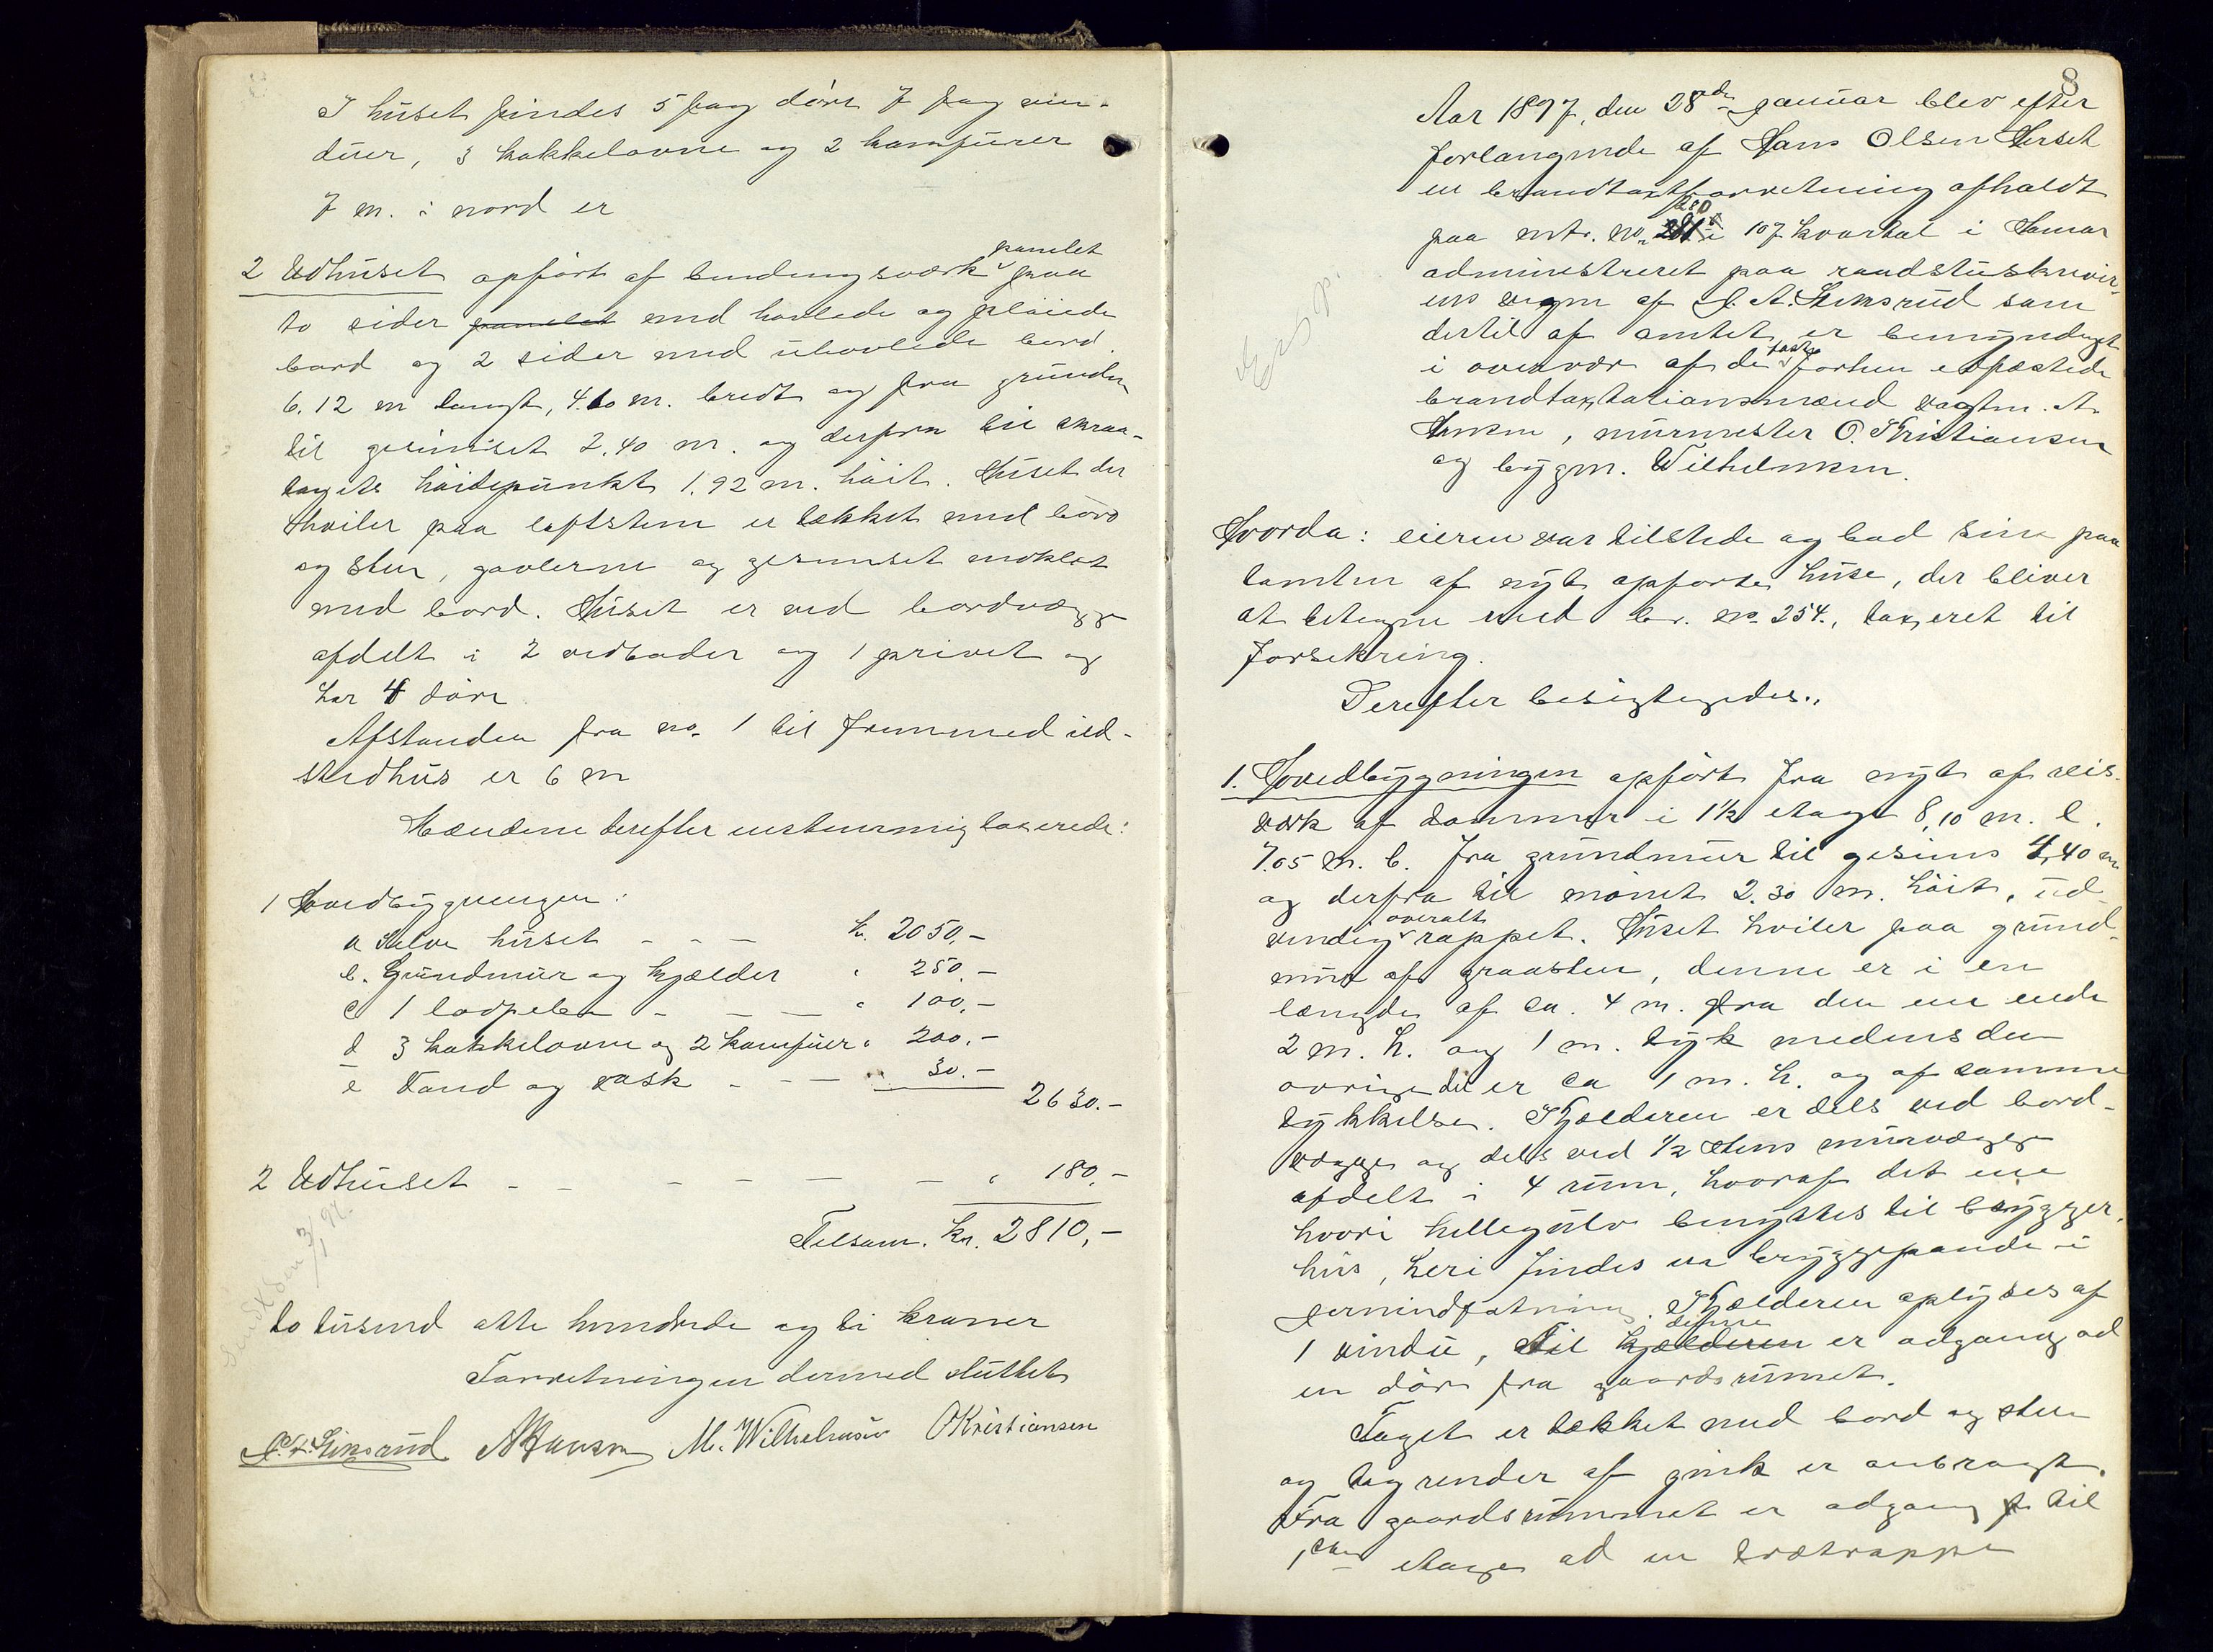 I huset findes 5 fag döre 7 fag vin-
duer, 3 kakkelovne og 2 komfurer
7 m. i nord er
2 Udhuset opfört af bindingsværk panelet paa
to sider panelet med hövlede og plöiede
bord og 2 sider med uhövlede bord.
6.12 m langt, 4.60 m. bredt og fra grunden
til gesimset 2,40 m. og derfra til skraa-
tagets höidepunkt 1.92 m. höit. Huset der
hviler paa löftsten er tækket med bord
og sten, gavlerne og gesimset indklædt
med bord. Huset er ved bordvægge
afdelt i 2 vedboder og 1 privet og
har 4 döre
Afstanden fra no. 1 til fremmed ild-
stedhus er 6 m
Mændene derefter enstemmig taxerede:
1 Hovedbygningen:
a Selve huset - - - kr. 2050,-
b. Grundmur og kjælder " 250,-
c 1 lodpibe - - - " 100,-
d 3 kakkelovne og 2 komfurer " 200,-
e Vand og vask - - - " 30.-
2630.-
2 Udhuset - - - - - - - " 180,-
Tilsam. kr. 2810,-
to tusind otte hundrede og ti kroner
Forretningen dermed sluttet
A Hansen M. Wilhelmsen O Kristiansen
8
Aar 1897, den 28de januar blev efter
forlangende af Hans Olsen Herset
en brandtaxtforretning afholdt
paa mtr. no. 281 280 i 107 kvartal i Hamar
administreret paa raadstuskriver-
ens vegne af som
dertil af amtet er bemyndiget
i overvær af de faste forhen edfæstede
brandtaxtationsmænd vagtm. A.
Hansen, murmester O. Kristiansen
og bygm. Wilhelmsen.
Hvorda: eieren var tilstede og bad sine paa
tomten af nyt opförte huse, der bliver
at betegne med br. no. 254., taxeret til
forsikring.
Derefter besigtigedes.,
1. Hovedbygningen opfört fra nyt af reis-
værk af tömmer i 1½ etage 8,10 m. l.
7.05 m. b. fra grundmur til gesims 4,40 m
og derfra til mönet 2.30 m. höit, ud-
vendig overalt rappet. Huset hviler paa grund-
mur af graasten, denne er i en
længde af ca. 4 m. fra den ene ende
2 m. h. og 1 m. tyk medens den
övrige del er ca 1 m. h. og af samme
tykkelse. Kjælderen er dels ved bord-
vægge og dels ved ½ stens murvægge
afdelt i 4 rum, hvoraf det ene
hvori hellegulv benyttes til brygger-
hus, heri findes en bryggepande i
jernindfatning. Kjælderen oplyses af
1 vindu, Til kjælderen denne er adgang ad
en dör fra gaardsrummet.
Taget er tækket med bord og sten
og tagrender af zink er anbragt.
Fra gaardsrummet er adgang til
1ste etage ad en trætrappe